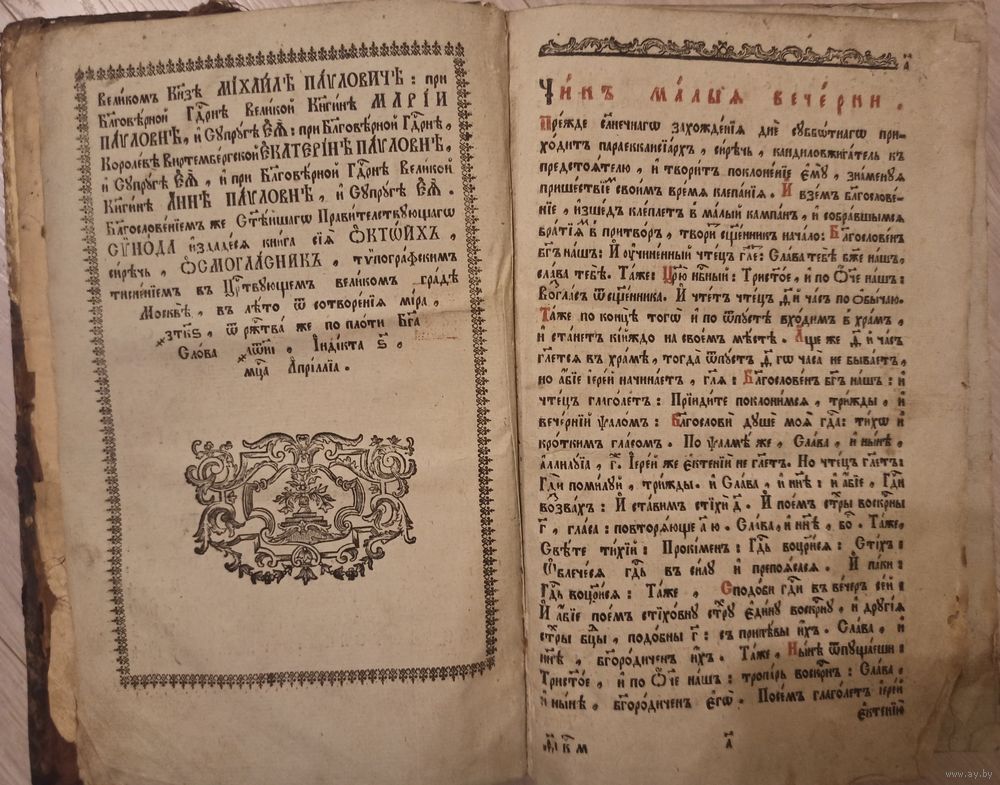 Великомъ Кнѕѣ МІХАИЛѢ ПАѴЛОВИЧѢ: при
Благовѣрной Гдⷭ҇рнѣ Великой Кнѧгинѣ МАРІИ
ПАѴЛОВНѢ, и҆ Сꙋпрꙋгѣ Є҆ѧ̀: при Благовѣрной Гдⷭ҇рнѣ,
Королевѣ Виртембергской ЄКАТЕРІНѢ ПАѴЛОВНѢ,
и҆ Сꙋпрꙋгѣ Є҆ѧ̀, и҆ при Благовѣрной Гдⷭ҇рнѣ Великой
Кнѧгинѣ АННѢ ПАѴЛОВНѢ, и҆ Сꙋпрꙋгѣ Є҆ѧ̀.
Благословенїемъ же Ст҃ѣйшагѡ Правителствꙋющагѡ
СѴНОДА и҆здадесѧ книга сїѧ̀ Ѻ҆КТѠИХЪ,
си́рѣчь, Ѻ҆СМОГЛАСНИКЪ, тѷпографскимъ
тисненїемъ въ Црⷭ҇твꙋющемъ великомъ градѣ
Москвѣ, въ лѣто ѿ сотворенїѧ міра,
҂зткѕ, ѿ рⷤ҇тва же по плоти Бг҃а
Слова ҂аѡиі, Індікта ѕ,
мцⷭ҇а Апрілліа.
Чи́нъ ма́лыѧ вече́рни.
Пре́жде со́лнечнагѡ захожде́нїѧ днѐ сꙋббѡ́тнагѡ при-
хо́дитъ параекклисїа́рхъ, си́рѣчь, кандиловжига́тель къ
предстоѧ́телю, и҆ твори́тъ поклоне́нїе є҆мꙋ̀, зна́менꙋѧ
прише́ствїемъ свои́мъ вре́мѧ клепа́нїѧ. И҆ взе́мъ блгⷭ҇ослове́-
нїе, и҆зше́дъ кле́плетъ в̾ ма́лый кампа́нъ, и҆ собра́вшымсѧ
бра́тїѧмъ в̾ притво́ръ, твори́тъ сщ҃е́нникъ нача́ло: Блгⷭ҇ослове́нъ
бг҃ъ на́шъ: И҆ ᲂу҆чине́нный чте́цъ гл҃етъ: Сла́ва тебѣ̀ бж҃е на́шъ,
сла́ва тебѣ̀. Та́же: Цр҃ю̀ нбⷭ҇ный: Трист҃о́е, и҆ по Ѻ҆́ч҃е на́шъ:
Во́згласъ ѿ сщ҃е́нника. И҆ чте́тъ чте́цъ д҃ й ча́съ по ѻ҆бы́чаю.
Та́же по концѣ̀ тогѡ̀ и҆ по ѿпꙋ́стѣ вхо́димъ в̾ хра́мъ,
и҆ ста́нетъ кі́йждо на свое́мъ мѣ́стѣ. А҆́ще же д҃ й ча́съ
гл҃етсѧ въ хра́мѣ, тогда̀ ѿпꙋ́стъ д҃ гѡ часа̀ не быва́етъ,
но а҆́бїе і҆ере́й начина́етъ, гл҃ѧ: Блгⷭ҇ослове́нъ бг҃ъ на́шъ: и҆
чте́цъ глаго́летъ: Прїиди́те поклони́мсѧ, три́жды, и҆
вече́рнїй ѱало́мъ: Блгⷭ҇ословѝ дꙋшѐ моѧ̀ гдⷭ҇а: ти́хѡ и҆
кро́ткимъ гла́сомъ. По ѱалмѣ́ же, Сла́ва, и҆ ны́нѣ,
а҆ллилꙋ́їа, г҃. І҆ере́й же є҆ктенїѝ не гл҃етъ. Но чте́цъ гл҃етъ:
Гдⷭ҇и поми́лꙋй, три́жды. и҆ Сла́ва, и҆ нн҃ѣ: и҆ а҆́бїе, Гдⷭ҇и
воззва́хъ: И҆ ста́вимъ стїхѝ д҃. И҆ пое́мъ стр҃ы воскрⷭ҇ны
г҃, гла́са: повторѧ́юще а҃ ю. Сла́ва, и҆ нн҃ѣ, бо҃. Та́же,
Свѣ́те ти́хїй: Прокі́менъ: Гдⷭ҇ь воцр҃и́сѧ: Сті́хъ:
Ѡ҆блече́сѧ гдⷭ҇ь въ си́лꙋ и҆ препоѧ́сасѧ. И҆ па́ки:
Гдⷭ҇ь воцр҃и́сѧ: Та́же, Сподо́би гдⷭ҇и въ ве́черъ се́й:
И҆ а҆́бїе пое́мъ стїхо́внꙋ стр҃ꙋ є҆ди́нꙋ воскрⷭ҇нꙋ, и҆ дрꙋгі́ѧ
стр҃ы бцⷣы, подо́бны г҃: съ припѣ́вы и҆́хъ. Сла́ва, и҆
нн҃ѣ, бг҃оро́диченъ и҆́хъ. Та́же, Ны́нѣ ѿпꙋща́еши:
Трист҃о́е, и҆ по Ѻ҆́ч҃е на́шъ: тропа́рь воскрⷭ҇нъ: Сла́ва,
и҆ ны́нѣ, бг҃оро́диченъ є҆гѡ̀. Посе́мъ глаго́летъ і҆ере́й
є҆ктенїю̀
а҃
www.ay.by